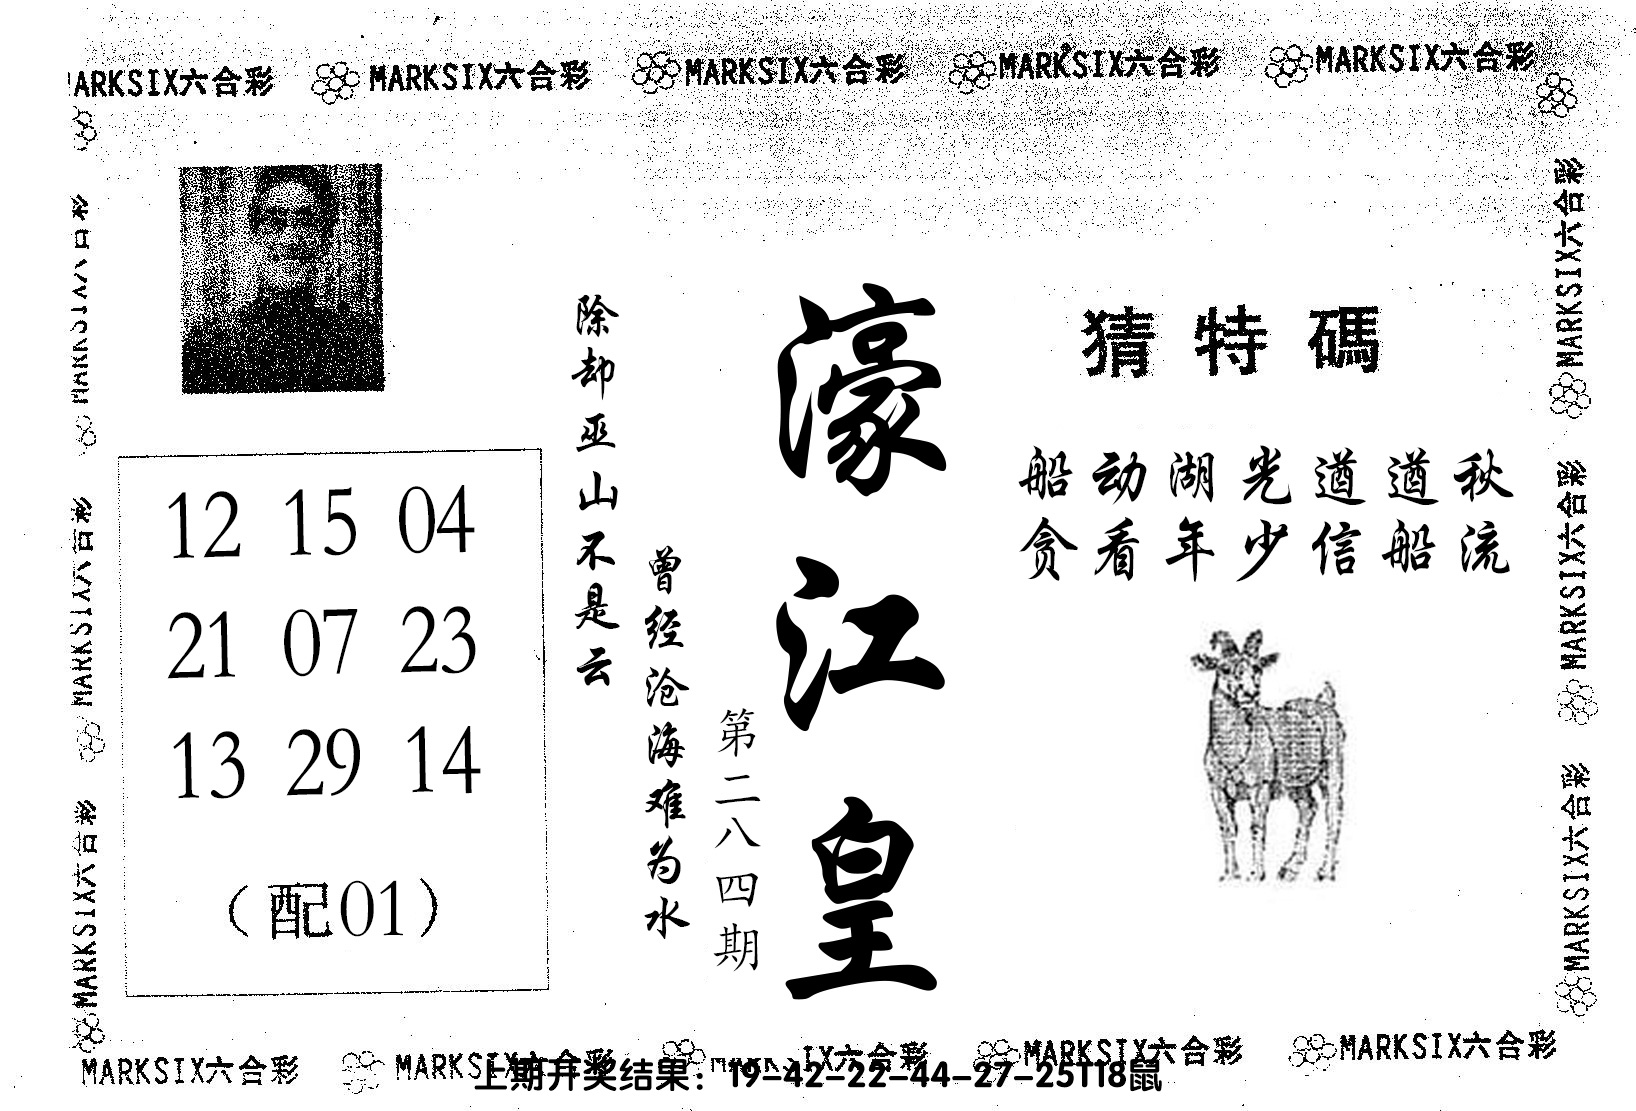 MARKSIX六合彩 MARKSIX六合彩 MARKSIX六合彩 MARKSIX六合彩
猜特碼
船动湖光遒遒秋
贪看年少信船流
濠江皇
第二八四期
曾经沧海难为水
除却巫山不是云
12 15 04
21 07 23
13 29 14
(配01)
MARKSIX六合彩
MARKSIX六合彩
MARKSIX六合彩
MARKSIX六合彩
MARKSIX六合彩
MARKSIX六合彩 MARKSIX六合彩 MARKSIX六合彩 MARKSIX六合彩
上期开奖结果：19-42-22-44-27-25T18鼠